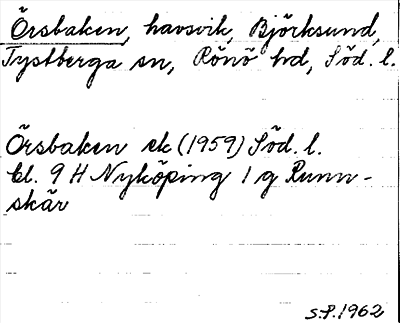 Örsbaken, havsvik, Björksund,
Tystberga sn, Rönö hd, Söd. l.
Örsbaken ek (1959) Söd. l.
bl. 9 H Nyköping 1 g Runn-
skär
S.P. 1962